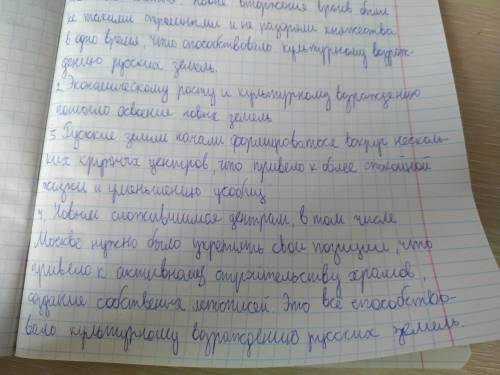 новые вторжения врагов были
не такими страшными и не разоряли княжества
в одно время, что способствовало культурному возрож-
дению русских земель.
2. Экономическому росту и культурному возрождению
помогло освоение новых земель
3. Русские земли начали формироваться вокруг несколь-
ких крупных центров, что привело к более спокойной
жизни и уменьшению усобиц
4. Новым сложившимся центрам, в том числе
Москве нужно было укрепить свои позиции, что
привело к активному строительству храмов,
создание собственных летописей. Это все способство-
вало культурному возрождению русских земель.